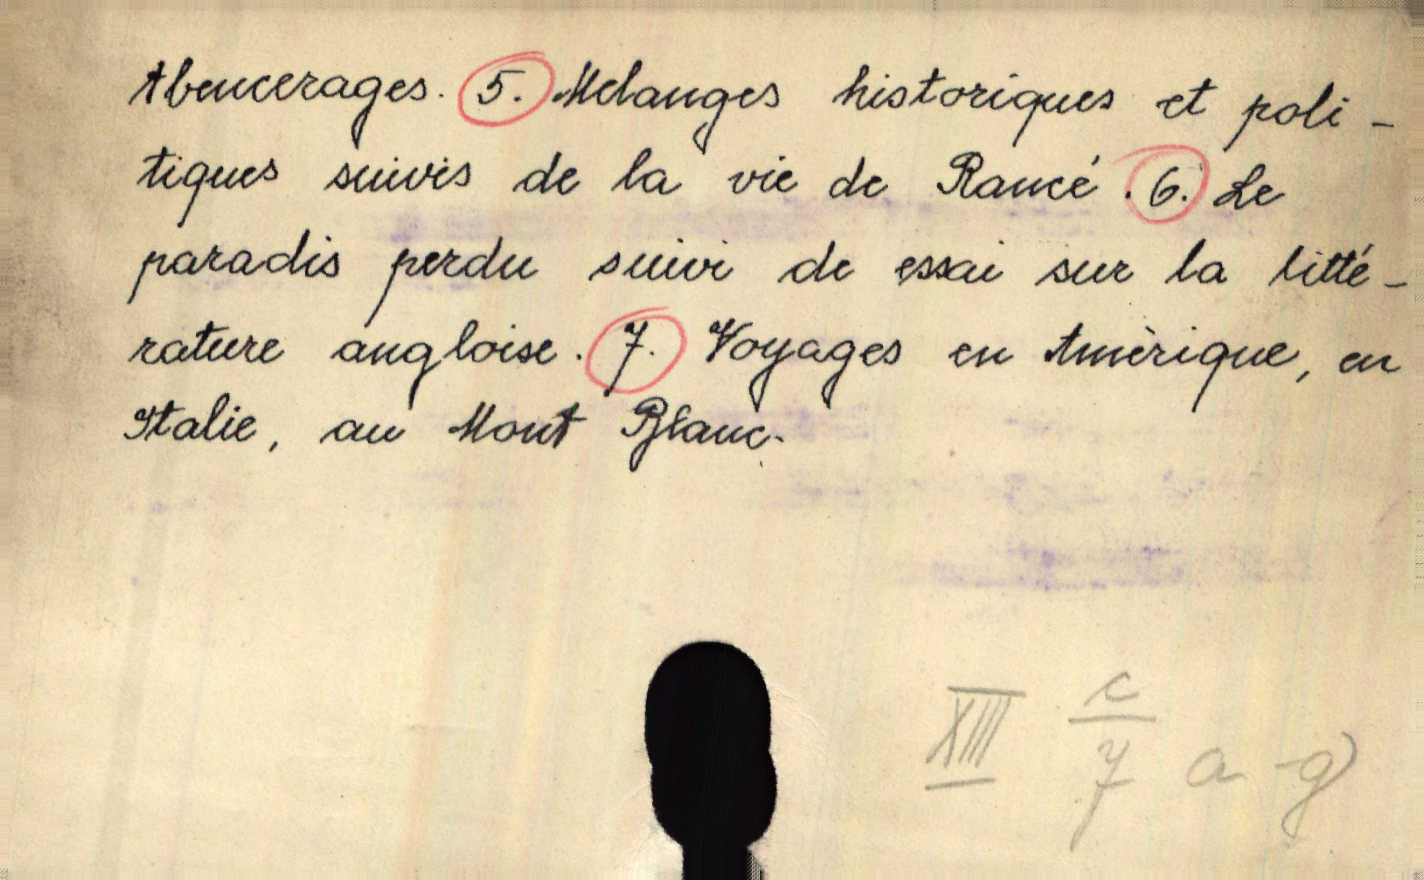 Abencerages. 5. Melanges historiques et poli-
tiques suivis de la vie de Rancé. 6. Le
paradis perdu suivi de essai sur la litté-
rature angloise. 7. Voyages en Amèrique, en
Italie, au Mont Blanc.
XIII c/7 a-g)